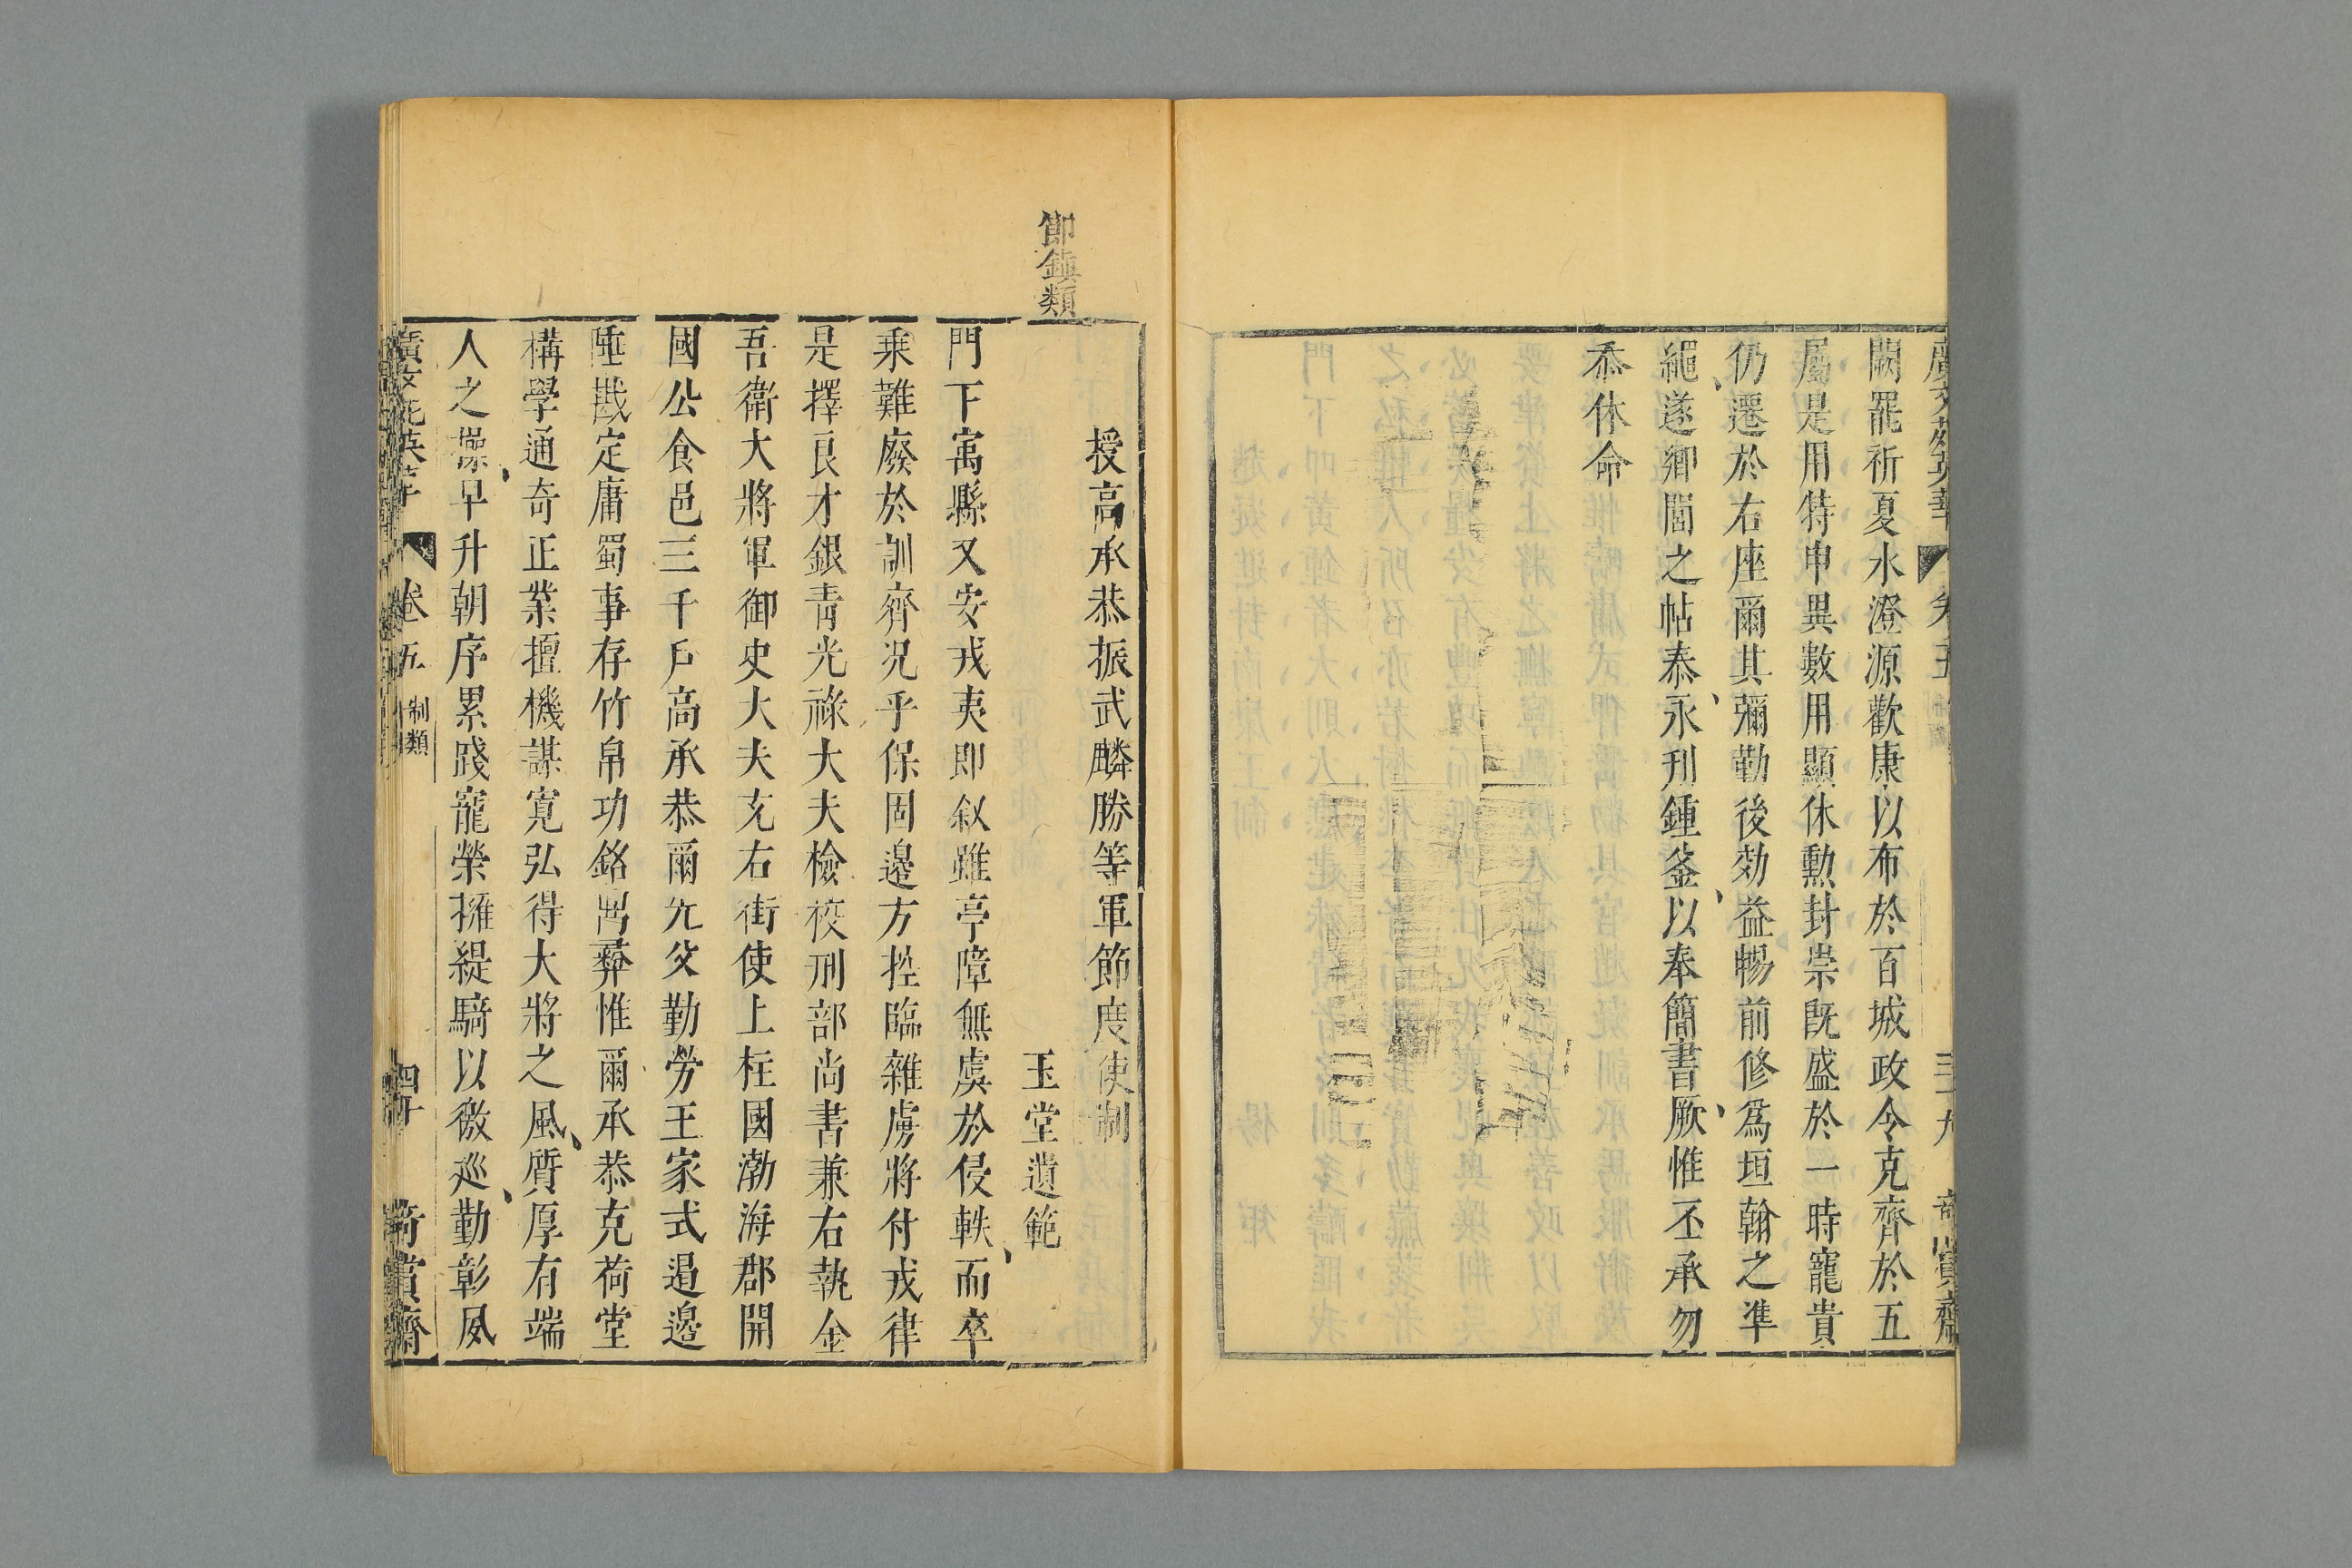 闕罷祈夏水澄源歡康以布於百城政令克齊於五
屬是用特申異數用顯休勲封崇既盛於一時寵貴
仍遷於右座爾其彌勤後効益暢前修爲垣翰之凖
繩遂鄉閭之帖泰永刋鍾釜以奉簡書厥惟丕承勿
忝休命
節鎮類
授高承恭振武麟勝等軍節度使制
玉堂遺範
門下寓縣乂安戎夷即叙雖亭障無虞於侵軼而卒
乗難廢於訓齊况乎保固邊方控臨雜虜將付戎律
是擇良才銀青光祿大夫檢校刑部尚書兼右執金
吾衛大將軍御史大夫充右街使上柱國渤海郡開
國公食邑三千戶高承恭爾先父勤勞王家式遏邊
陲戡定庸蜀事存竹帛功銘鼎彝惟爾承恭克荷堂
構學通奇正業擅機謀寬弘得大將之風質厚有端
人之操早升朝序累踐寵榮擁緹騎以徼巡勤彰夙
廣文苑英華 卷五 制類 四十 奇賞齋